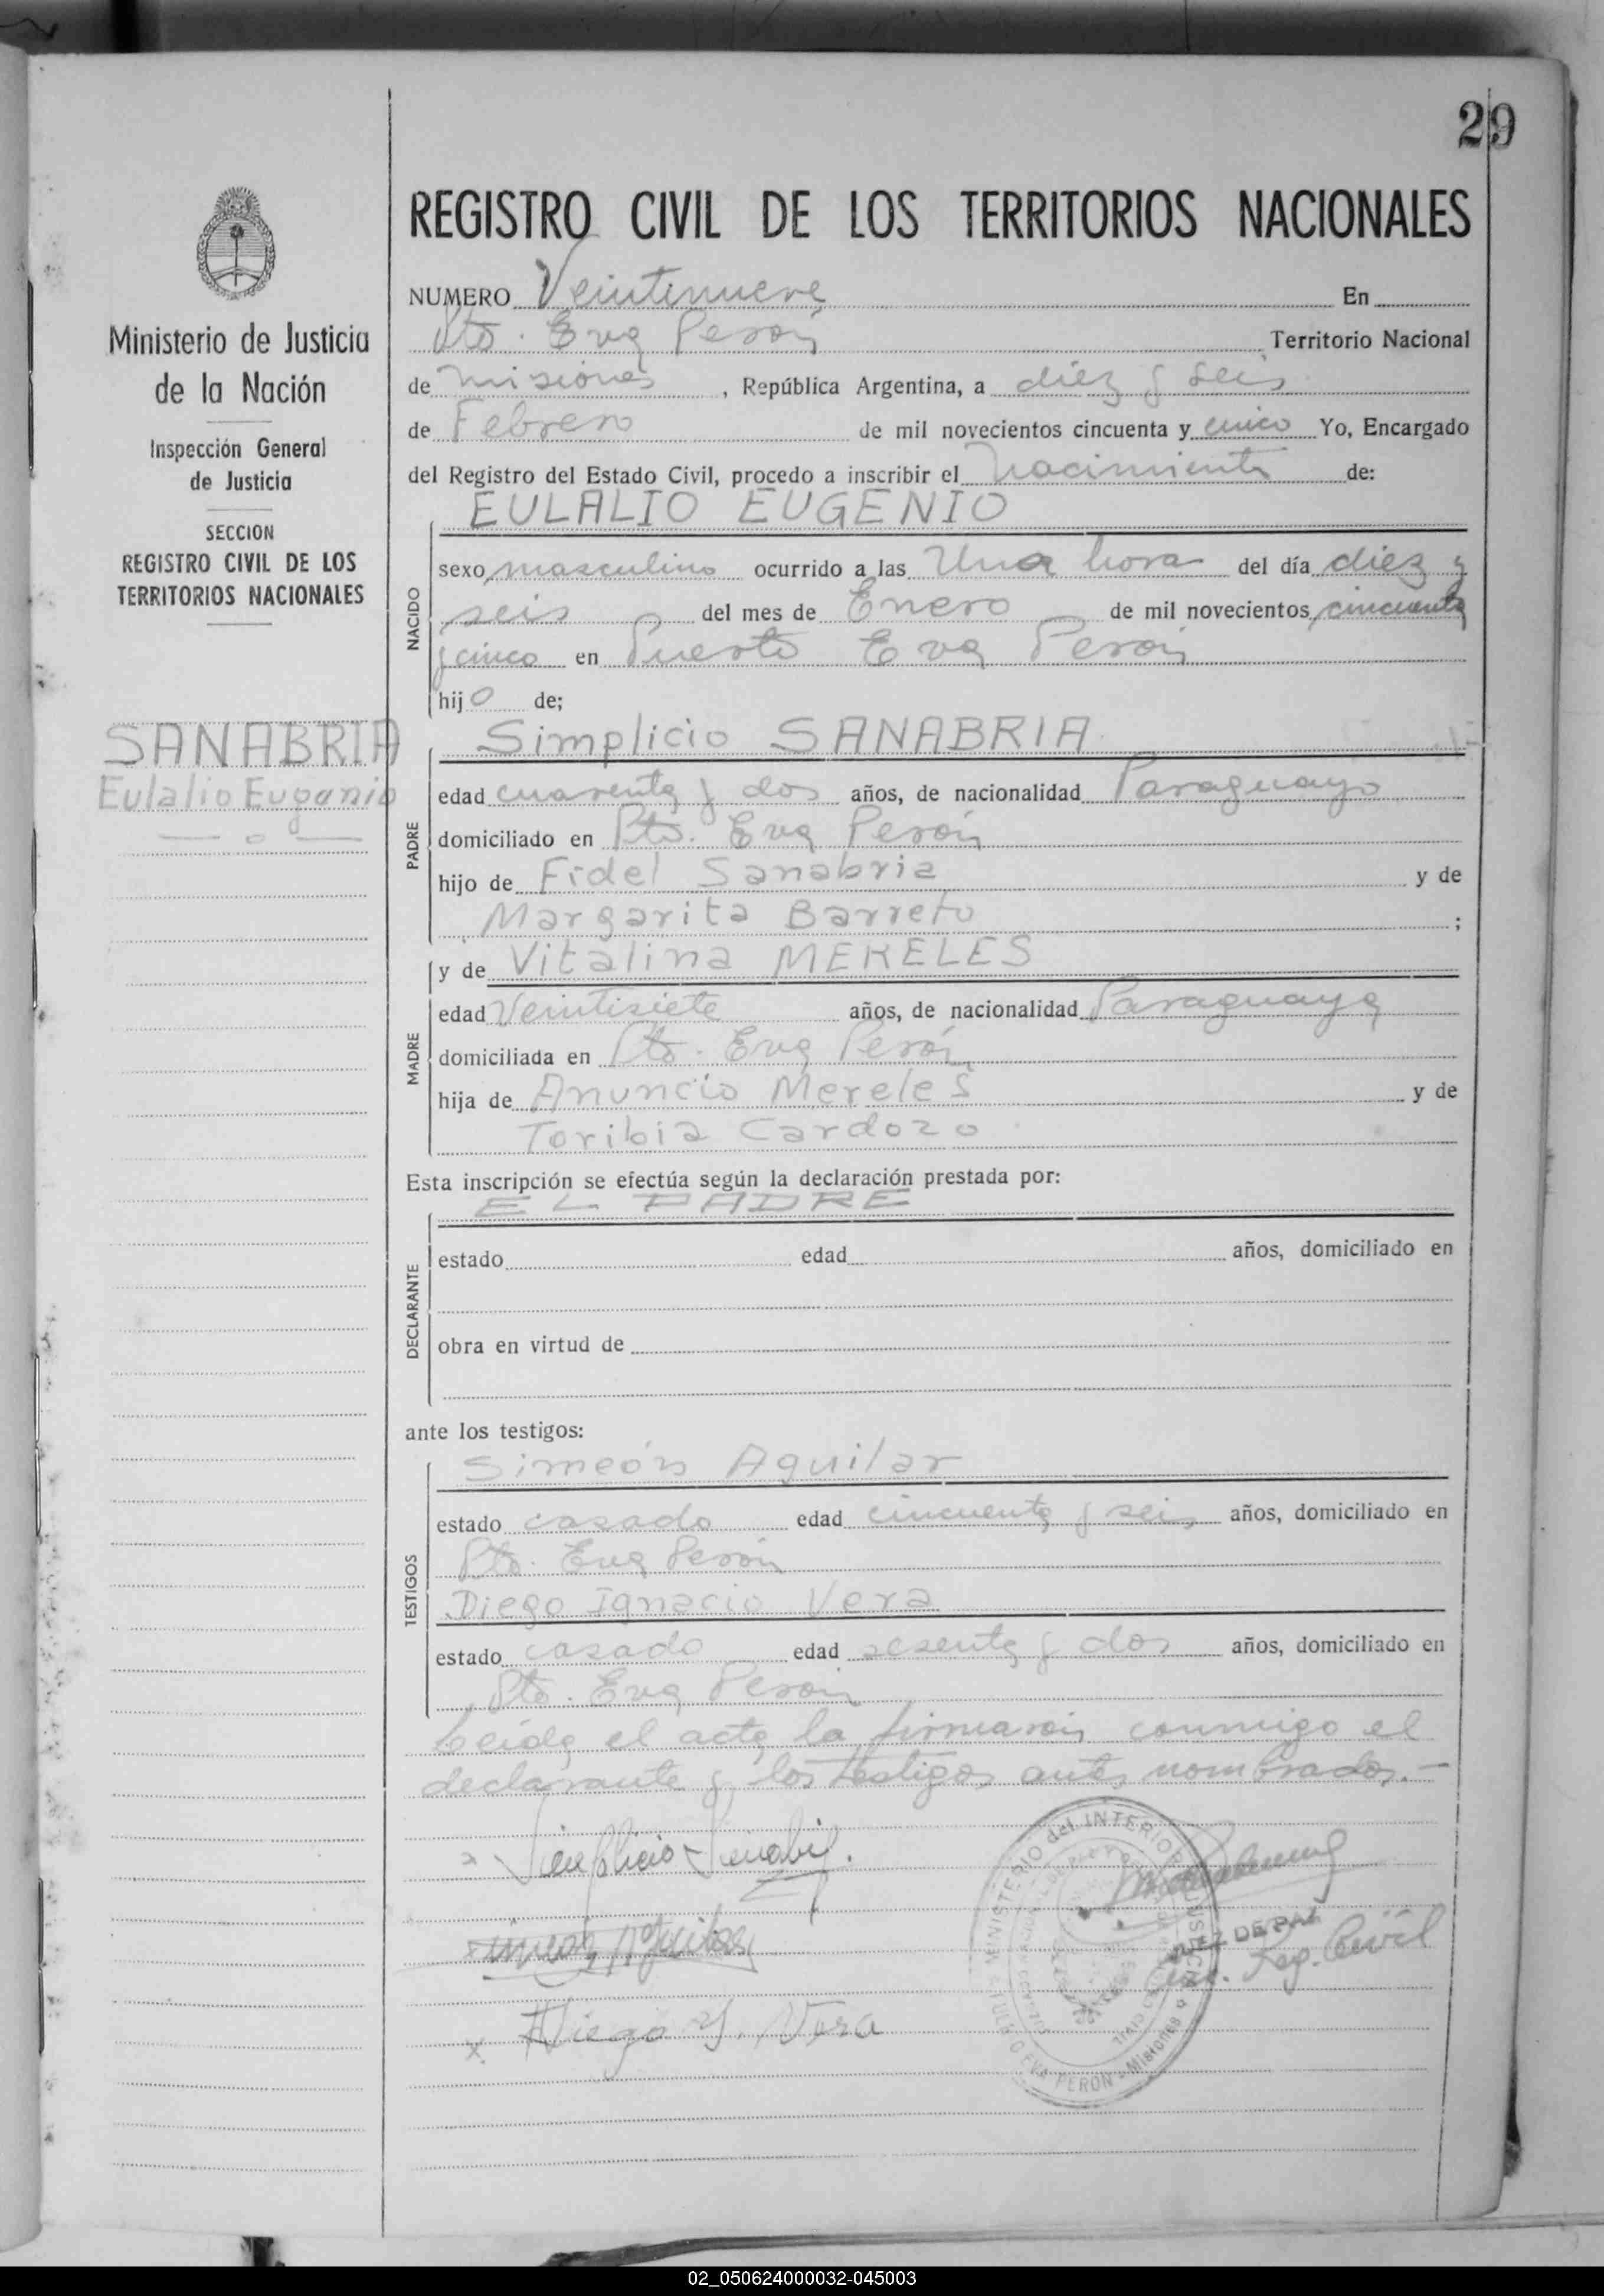 29
REGISTRO CIVIL DE LOS TERRITORIOS NACIONALES
Ministerio de Justicia
de la Nación
Inspección General
de Justicia
SECCION
REGISTRO CIVIL DE LOS
TERRITORIOS NACIONALES
SANABRIA
Eulalio Eugenio
NUMERO Veintinueve En
Pto. Eva Perón Territorio Nacional
de Misiones, República Argentina, a diez y seis
de Febrero de mil novecientos cincuenta y cinco Yo, Encargado
del Registro del Estado Civil, procedo a inscribir el nacimiento de:
EULALIO EUGENIO
NACIDO
sexo masculino ocurrido a las Una hora del día diez y
seis del mes de Enero de mil novecientos cincuenta
y cinco en Puerto Eva Perón
hijo de;
Simplicio SANABRIA
PADRE
edad cuarenta y dos años, de nacionalidad Paraguayo
domiciliado en Pto. Eva Perón
hijo de Fidel Sanabria y de
Margarita Barreto ;
y de Vitalina MERELES
MADRE
edad Veintisiete años, de nacionalidad Paraguaya
domiciliada en Pto. Eva Perón
hija de Anuncio Mereles y de
Toribia Cardozo
Esta inscripción se efectúa según la declaración prestada por:
EL PADRE
DECLARANTE
estado edad años, domiciliado en
obra en virtud de
ante los testigos:
Simeón Aguilar
TESTIGOS
estado casado edad cincuenta y seis años, domiciliado en
Pto. Eva Perón
Diego Ignacio Vera
estado casado edad sesenta y dos años, domiciliado en
Pto. Eva Perón
Leída el acta la firmaron conmigo el
declarante y los testigos antes nombrados.-
Simplicio Sanabria
MINISTERIO del INTERIOR JUSTICIA
EVA PERON - Misiones
JUEZ DE PAZ
Enc. Reg. Civil
Simeón Aguilar
x Diego Y. Vera
02_050624000032-045003